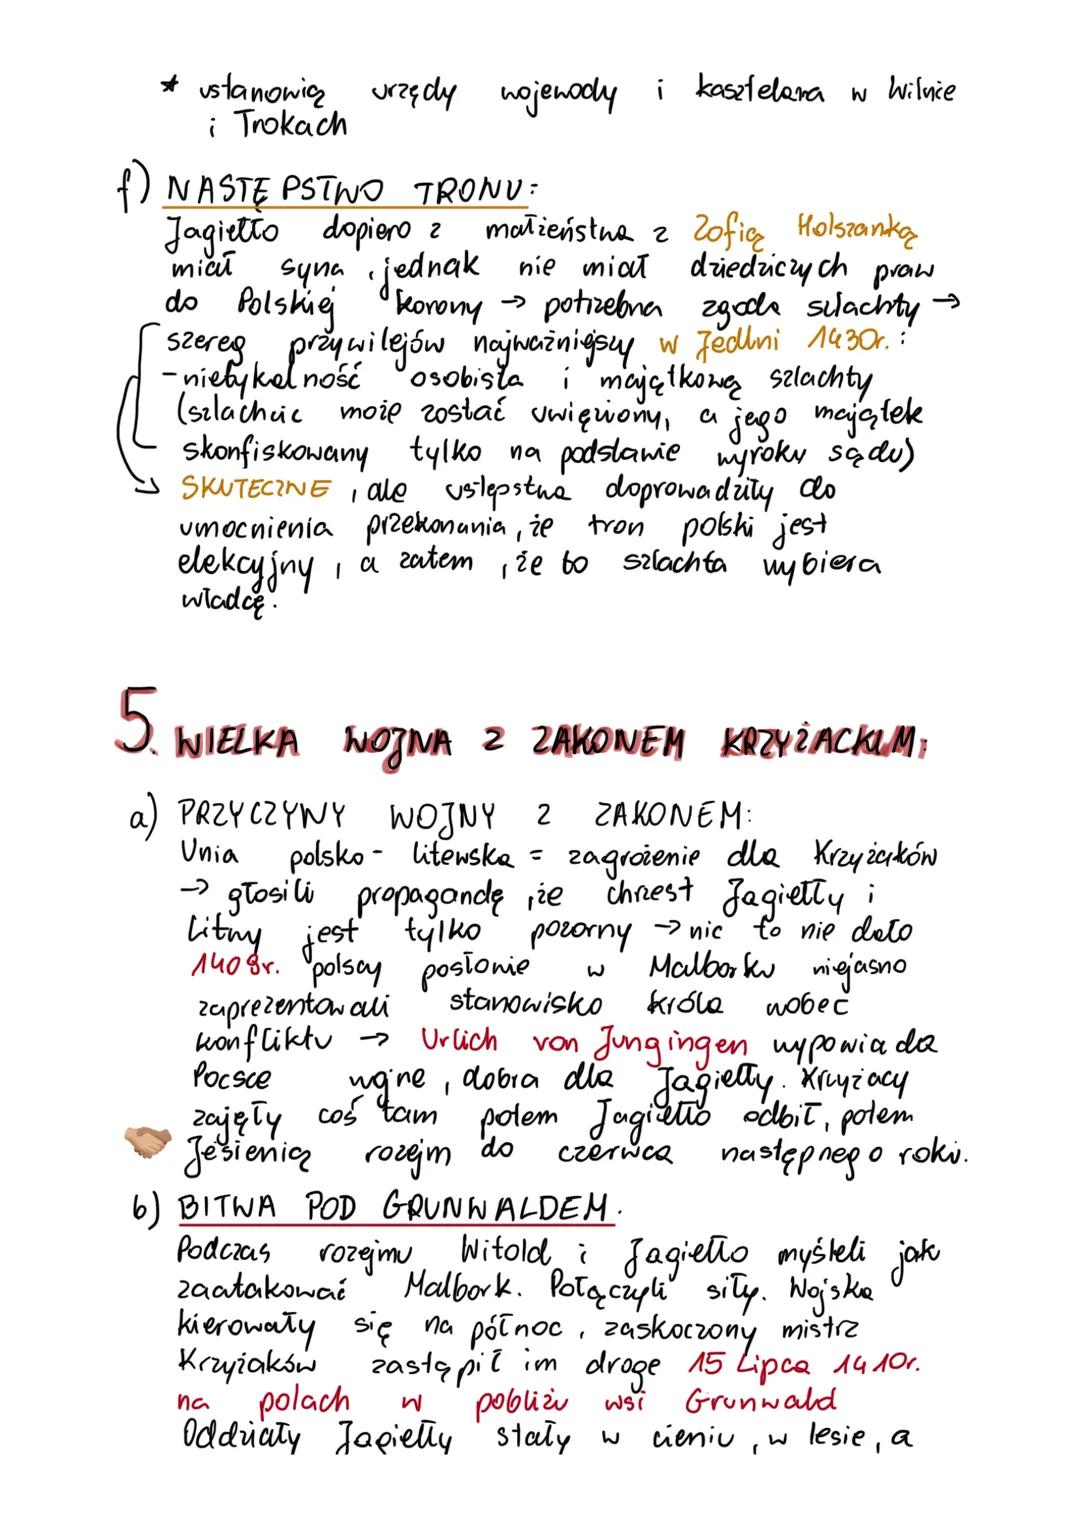 * ustanowią urzędy wojewody i kasztelana w Wilnie
i Trokach
f) NASTĘPSTWO TRONU:
Jagiełło dopiero z małżeństwa z Zofią Holszanką
miał syna, jednak nie miał dziedzicznych praw
do Polskiej korony → potrzebna zgoda szlachty →
szereg przywilejów najważniejszy w Jedlni 1430r.:
- nietykalność osobista i majątkową szlachty
(szlachcic może zostać uwięziony, a jego majątek
skonfiskowany tylko na podstawie wyroku sądu)
SKUTECZNE, ale ustępstwa doprowadziły do
umocnienia przekonania, że tron polski jest
elekcyjny, a zatem, że to szlachta wybiera
władcę.
5. WIELKA WOJNA Z ZAKONEM KRZYŻACKIM:
a) PRZYCZYWY WOJNY Z ZAKONEM:
Unia polsko - litewska = zagrożenie dla Krzyżaków
→ głosili propagandę, że chrzest Jagiełły i
Litwy jest tylko pozorny → nic to nie dało
1408r. polscy posłowie w Malborku niejasno
zaprezentowali stanowisko króla wobec
konfliktu → Urlich von Jungingen wypowiada
Pocsce wojnę, dobra dla Jagiełły. Krzyżacy
zajęły coś tam potem Jagiełło odbił, potem
Jesienią rozejm do czerwca następnego roku.
b) BITWA POD GRUNWALDEM.
Podczas rozejmu Witold i Jagiełło myśleli jak
zaatakować Malbork. Połączyli siły. Wojska
kierowały się na północ, zaskoczony mistrz
Krzyżaków zastąpił im drogę 15 Lipca 1410r.
na polach w pobliżu wsi Grunwald
Oddziały Jagiełły stały w cieniu, w lesie, a